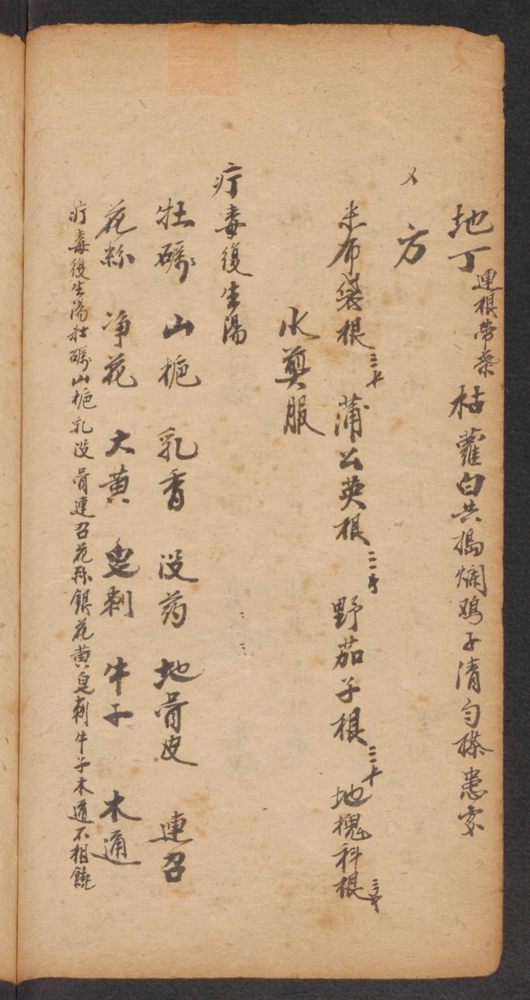 地丁連根帶葉 枯蘿白共搗爛鸡子清勻搽患家
方
米布袋根三十 蒲公英根二十 野茄子根三十 地槐科根
水煎服
疔毒復生湯
牡礪 山梔 乳香 沒药 地骨皮 連召
花粉 净花 大黄 皂刺 牛子 木通
疔毒復生湯牡礪山梔乳沒骨連召花粉銀花黄皂刺牛子木通不相饒